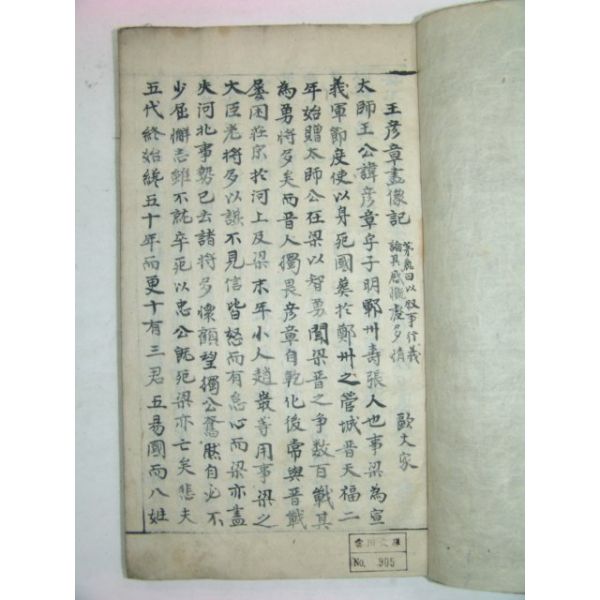 王彥章畫像記
茅鹿曰以叙事行義
論其感慨處多情
歐大家
太師王公諱彥章字子明鄆州壽張人也事梁為宣
義軍節度使以身死國葬於鄭州之管城晋天福二
年始贈太師公在梁以智勇聞梁晋之争数百戰其
為勇將多矣而晋人獨畏彥章自乾化後常與晋戰
屢困莊宗於河上及梁末年小人趙巖等用事梁之
大臣老將多以讒不見信皆怒而有怠心而梁亦盡
失河北事勢已去諸將多懷顧望獨公奮然自必不
少屈懈志雖不就卒死以忠公旣死梁亦亡矣悲夫
五代終始纔五十年而更十有三君五易國而八姓
No. 905